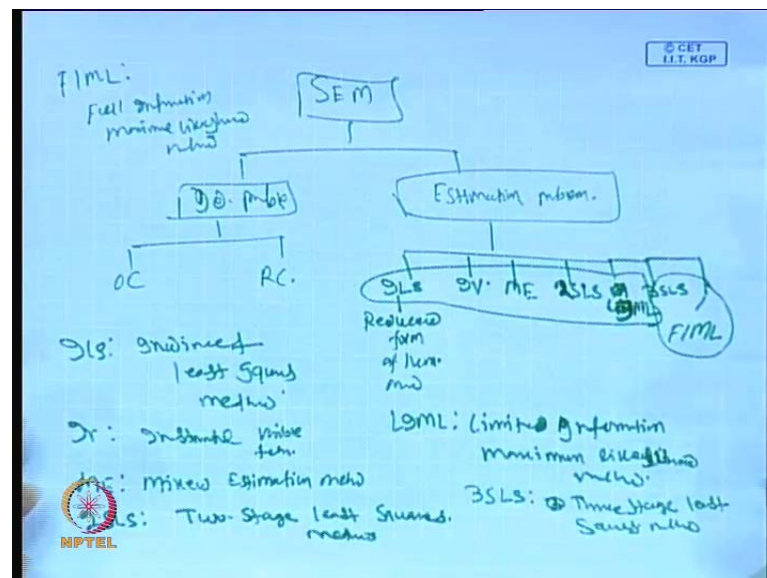 © CET
I.I.T. KGP
FIML:
Full Information
maximum likelihood
method
SEM
Estimation problem.
OC
RC.
ILS
IV.
ME
2SLS
LIML
3SLS
FIML
Reduced
form
of
ILS: Indirect
least squares
method
IV: Instrumental variable
ME: Mixed Estimation method
2SLS: Two-Stage least Squares.
method
LIML: Limited Information
maximum likelihood
method.
3SLS: Three Stage least
Squares method
NPTEL